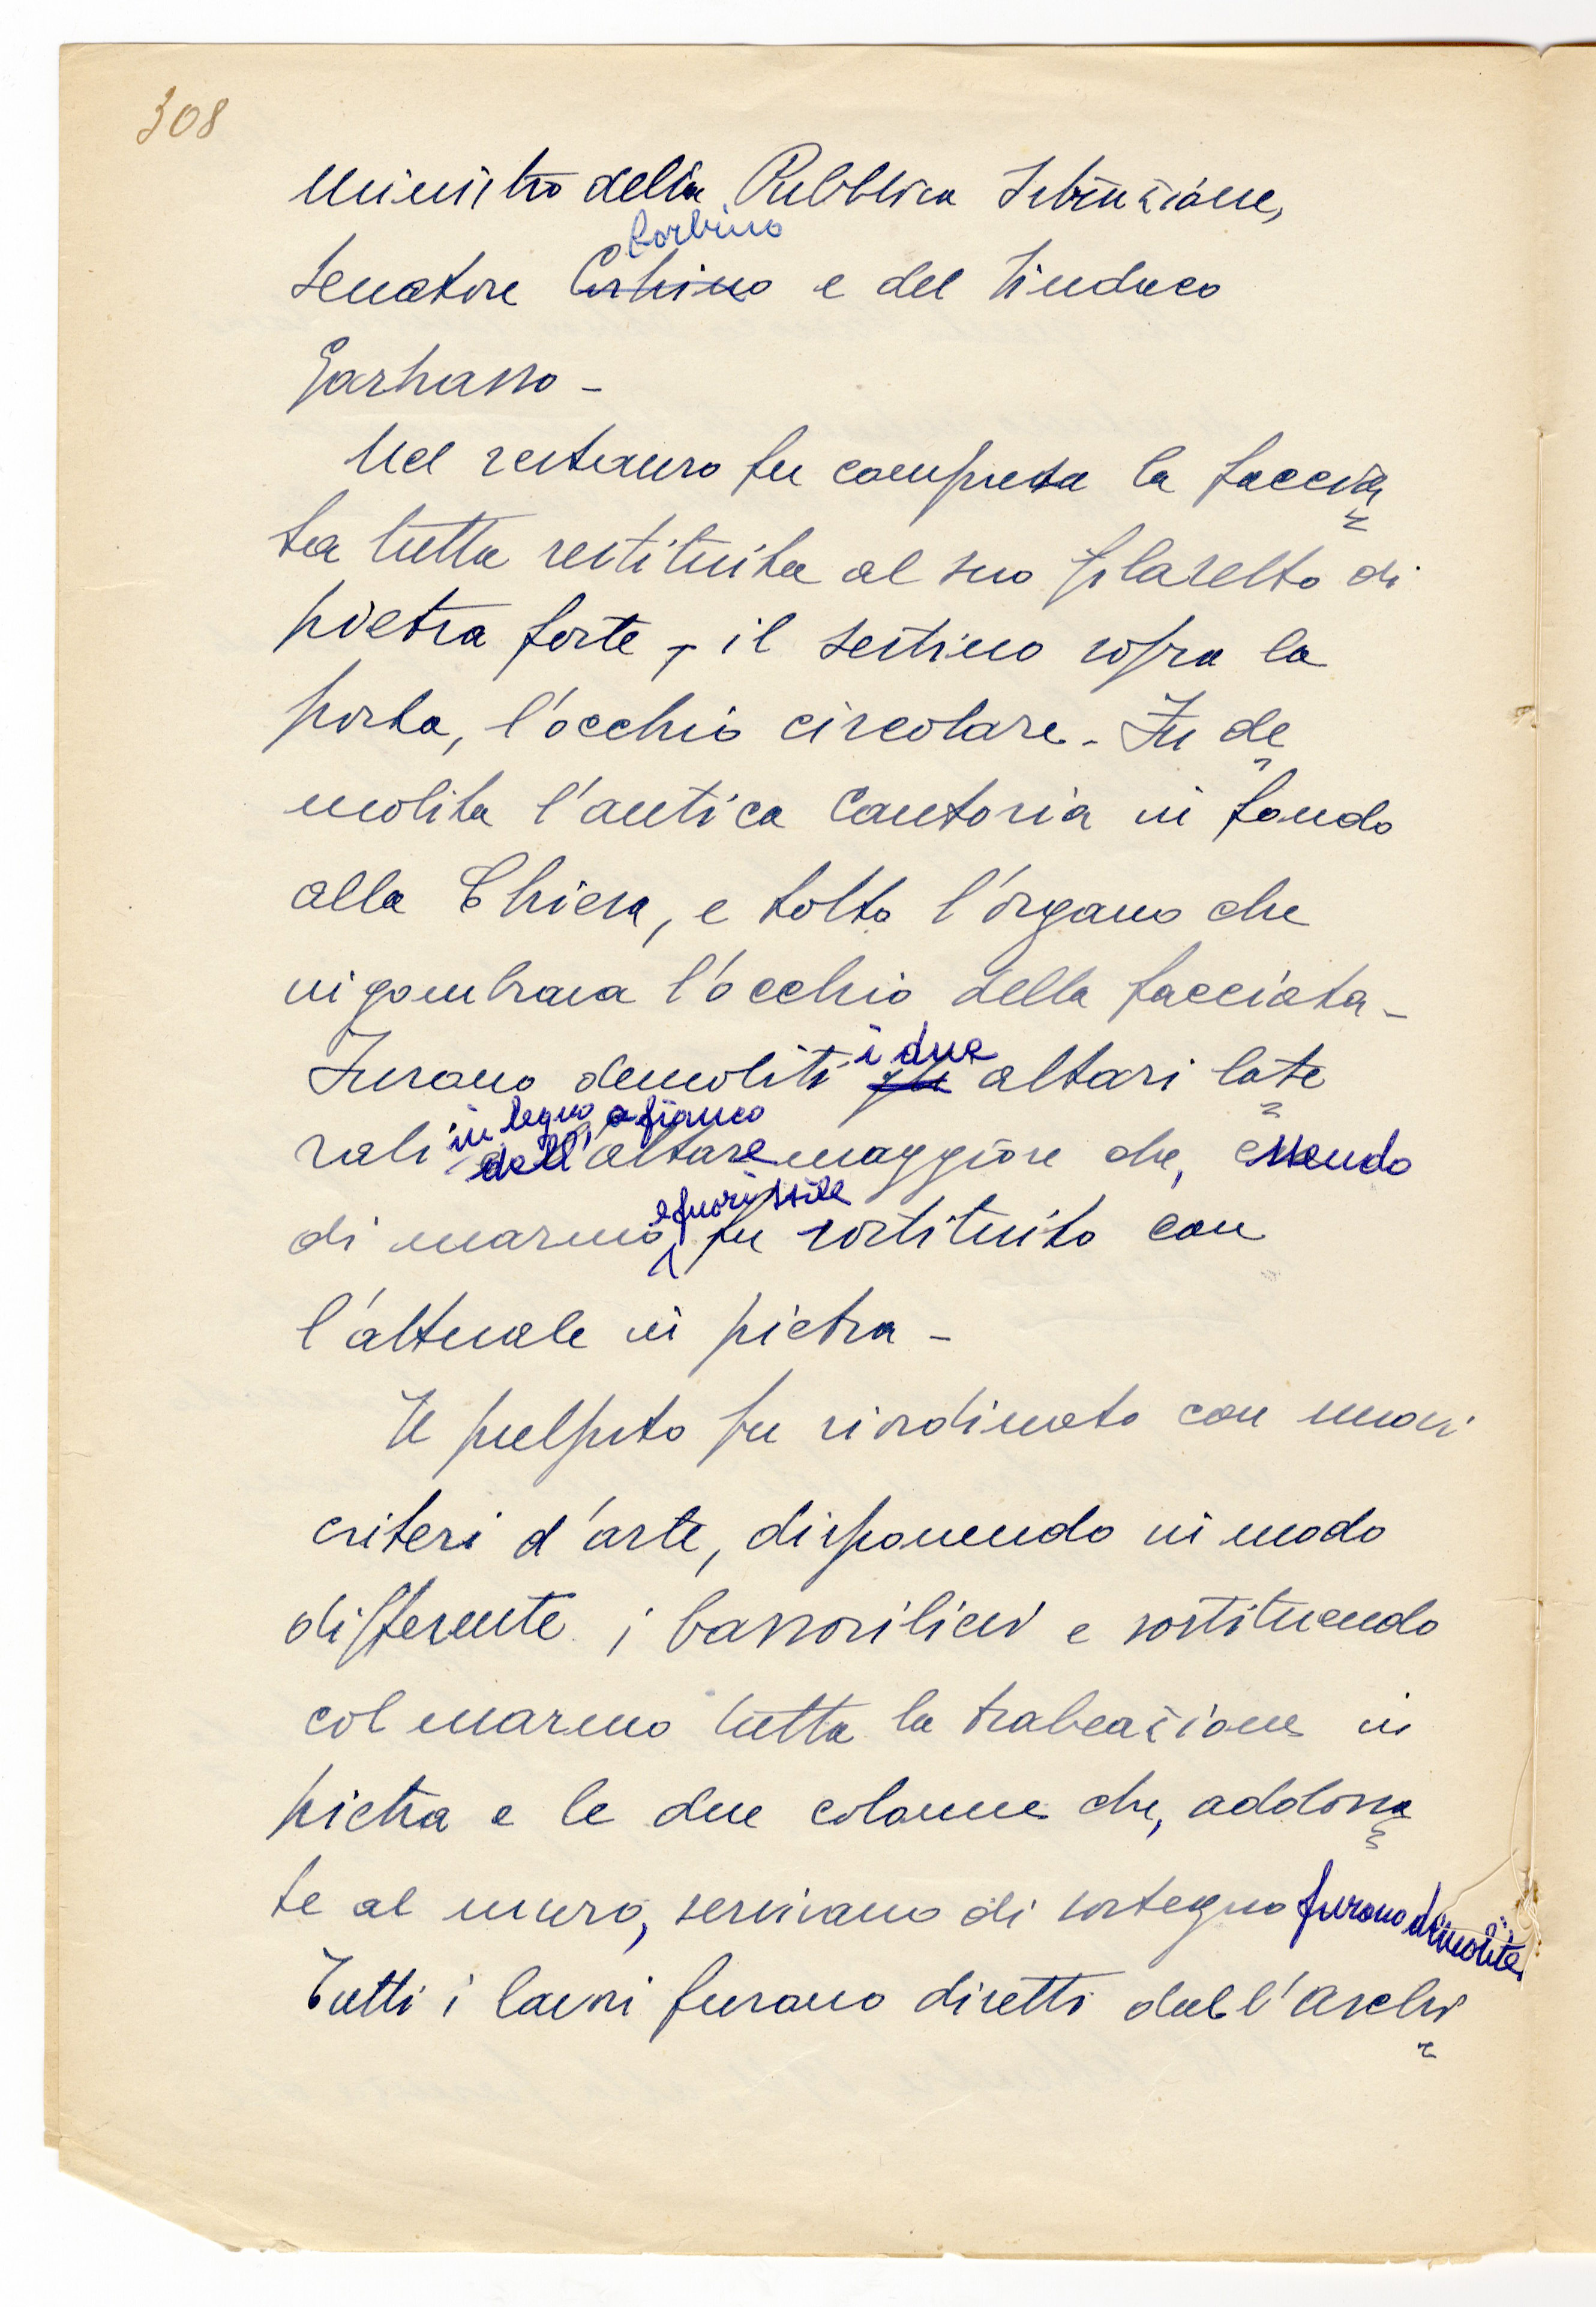 308
Ministro della Pubblica Istruzione,
Corbino
Senatore Corbino e del Sindaco
Garbasso -
Nel restauro fu compresa la faccia
ta tutta restituita al suo filaretto di
pietra forte, il sestino sopra la
porta, l'occhio circolare. Fu de
molita l'antica Cantoria in fondo
alla Chiesa, e tolto l'organo che
ingombrava l'occhio della facciata -
i due
Furono demoliti gli altari late
in legno, a fianco
rali dell'altare maggiore che, essendo
e fuori stile
di marmo fu sostituito con
l'attuale in pietra -
Il pulpito fu riordinato con nuovi
criteri d'arte, disponendo in modo
differente i bassorilievi e sostituendo
col marmo tutta la trabeazione in
pietra e le due colonne che, addossa
te al muro, servivano di sostegno furono demolite
Tutti i lavori furono diretti dall'archi